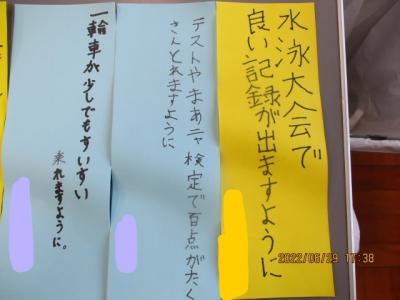 水泳大会で
良い記録が出ますように
テストやまあニャ検定で百点がたく
さんとれますように
一輪車が少しでもすいすい
乗れますように。
2022/06/29 17:38